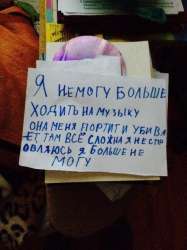 Я НЕМОГУ БОЛЬШЕ
ХОДИТЬ НА МУЗЫКУ
ОНА МЕНЯ ПОРТИТ И УБИВА
ЕТ ТАМ ВСЁ СЛОЖНА Я НЕ СПР
ОВЛЯЮСЬ Я БОЛЬШЕ НЕ
МОГУ